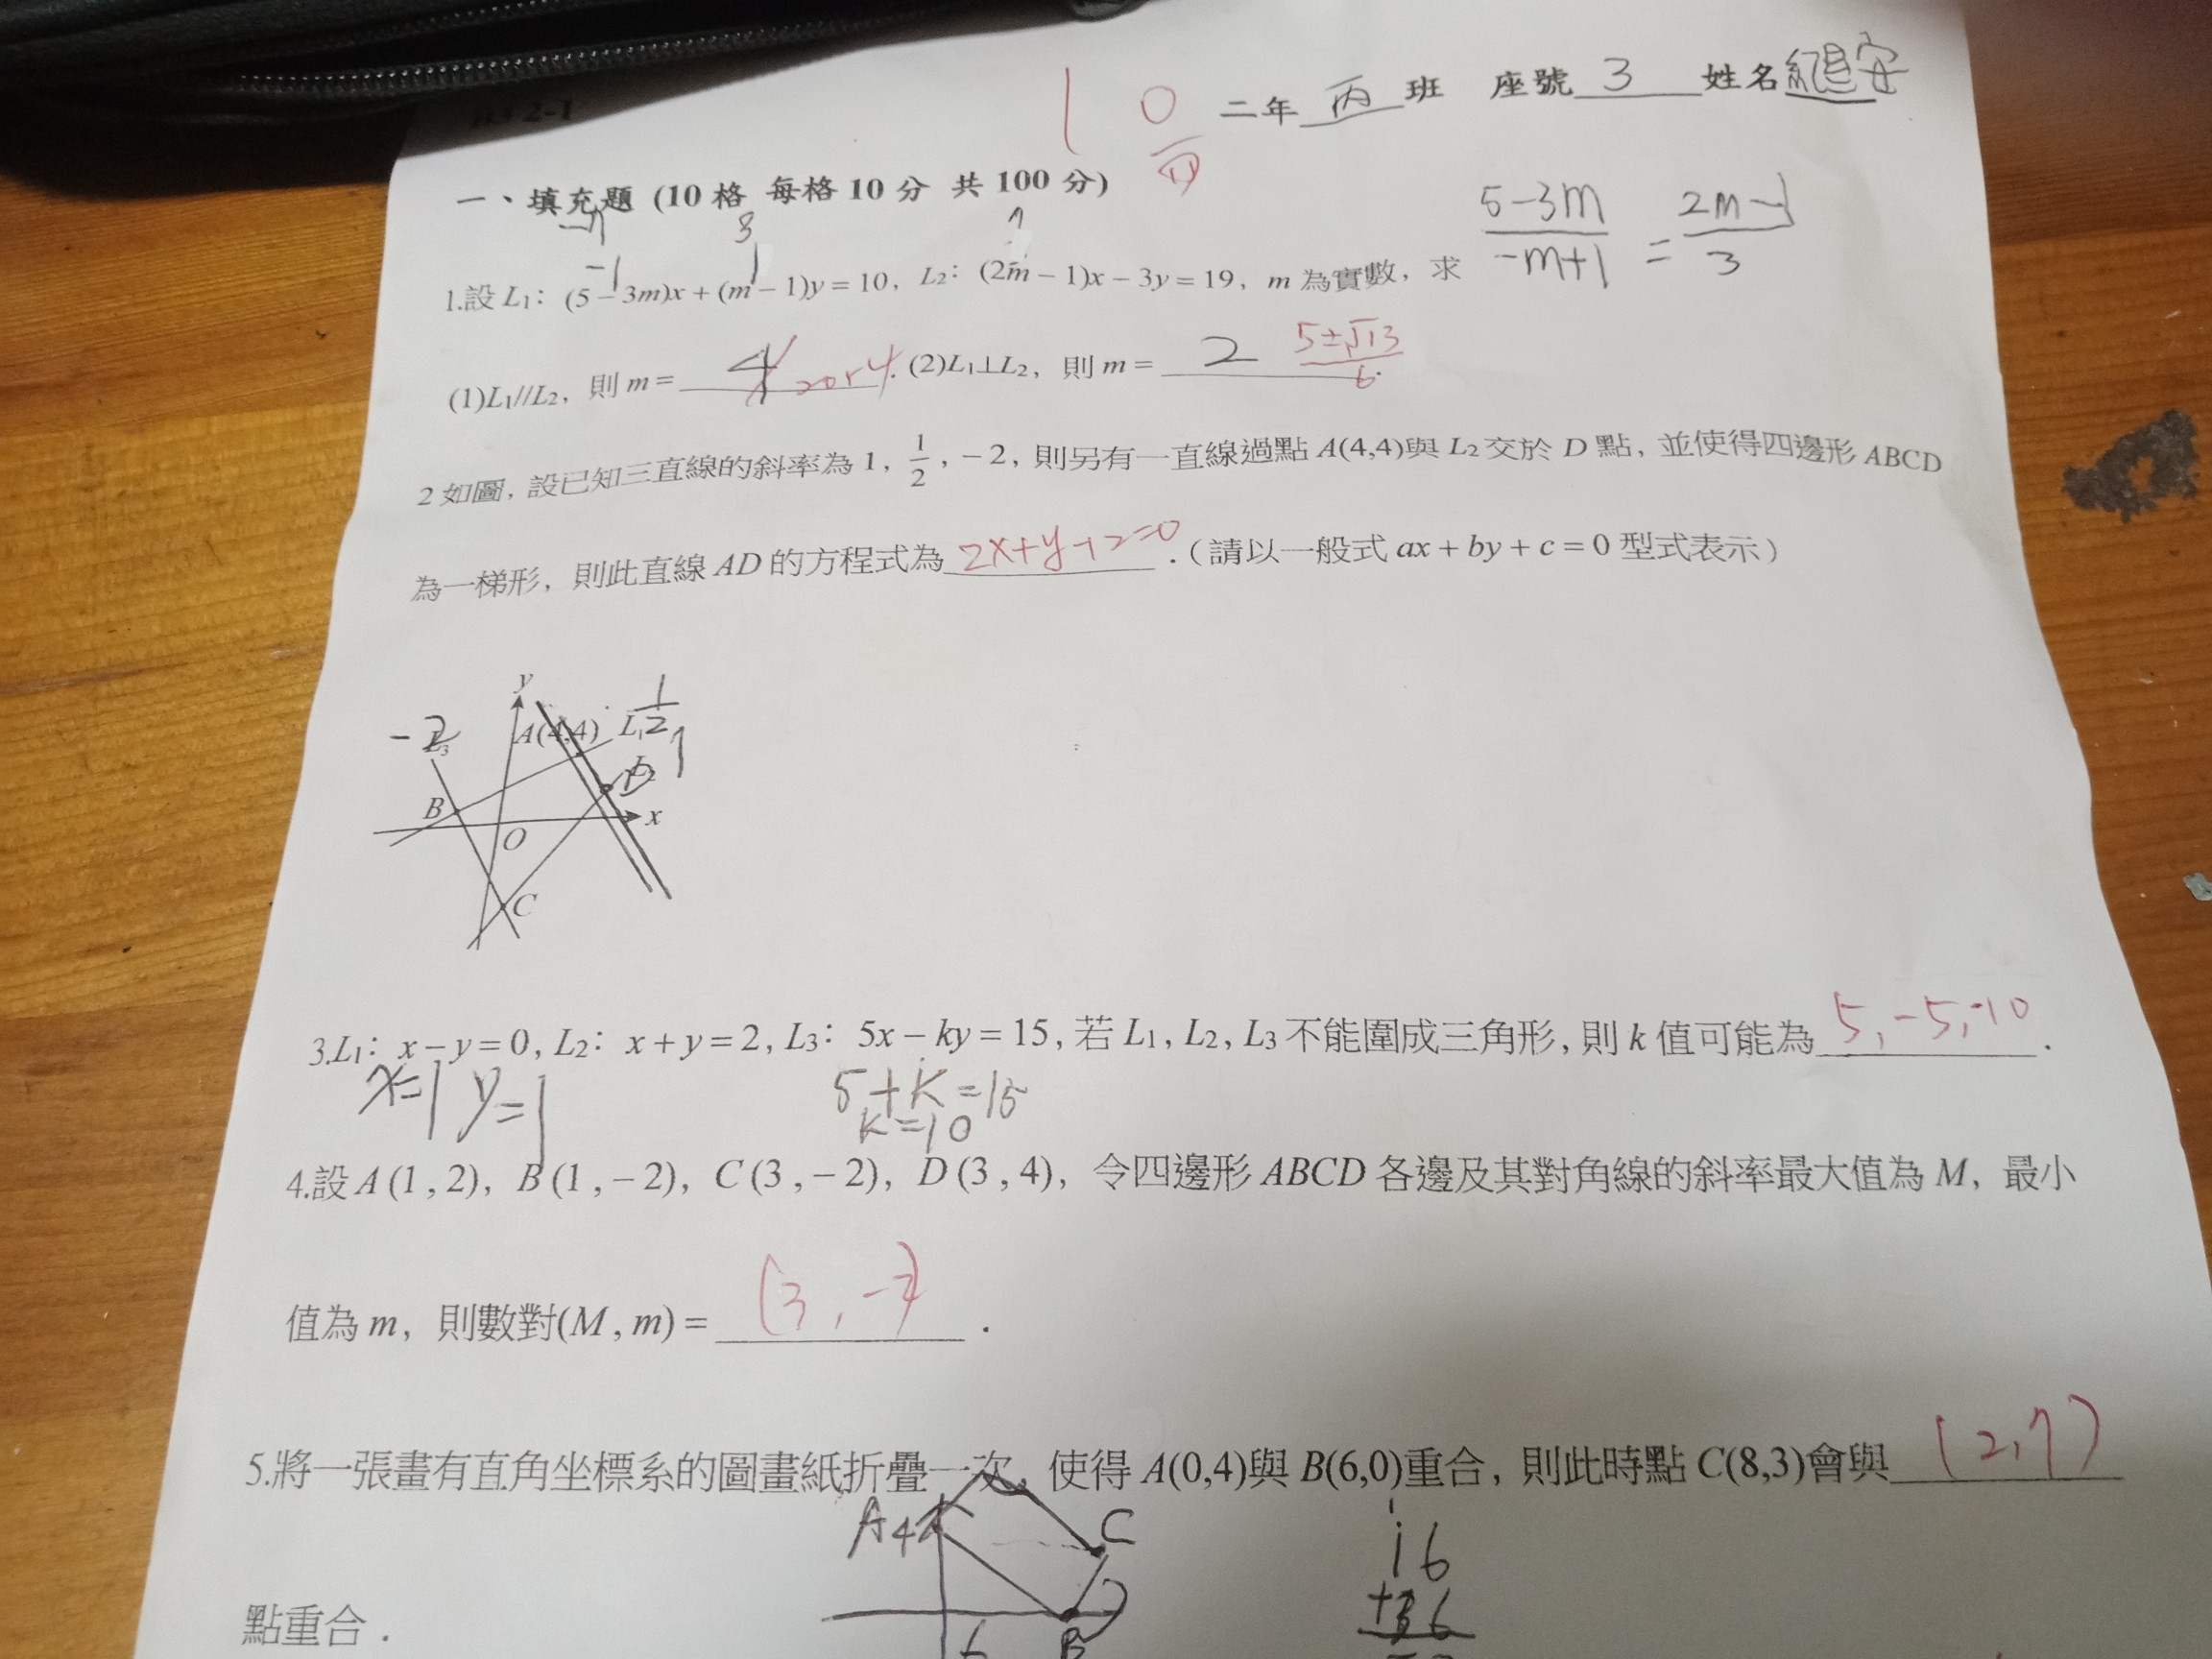 1 0
二年 丙 班 座號 3 姓名
一、填充題 (10 格 每格 10 分 共 100 分)
5-3m / -m+1 = 2m-1 / 3
1.設 L1：(5-3m)x+(m-1)y=10，L2：(2m-1)x-3y=19，m 為實數，求
(1)L1//L2，則 m= 4 2or4 . (2)L1⊥L2，則 m= 2 5±√13 / 6 .
2 如圖，設已知三直線的斜率為 1，1/2，-2，則另有一直線過點 A(4,4)與 L2 交於 D 點，並使得四邊形 ABCD
為一梯形，則此直線 AD 的方程式為 .（請以一般式 ax+by+c=0 型式表示）
y
1/2
-2 L3 A(4,4) L1
1
L2 D
B
x
O
C
3.L1：x-y=0，L2：x+y=2，L3：5x-ky=15，若 L1，L2，L3 不能圍成三角形，則 k 值可能為 5,-5,-10 .
x=1 y=1 5+k=15
k=10
4.設 A(1,2)，B(1,-2)，C(3,-2)，D(3,4)，令四邊形 ABCD 各邊及其對角線的斜率最大值為 M，最小
值為 m，則數對(M,m)= .
5.將一張畫有直角坐標系的圖畫紙折疊一次，使得 A(0,4)與 B(6,0)重合，則此時點 C(8,3)會與 (2,7)
A 4 C
16
+36
點重合．
6 B